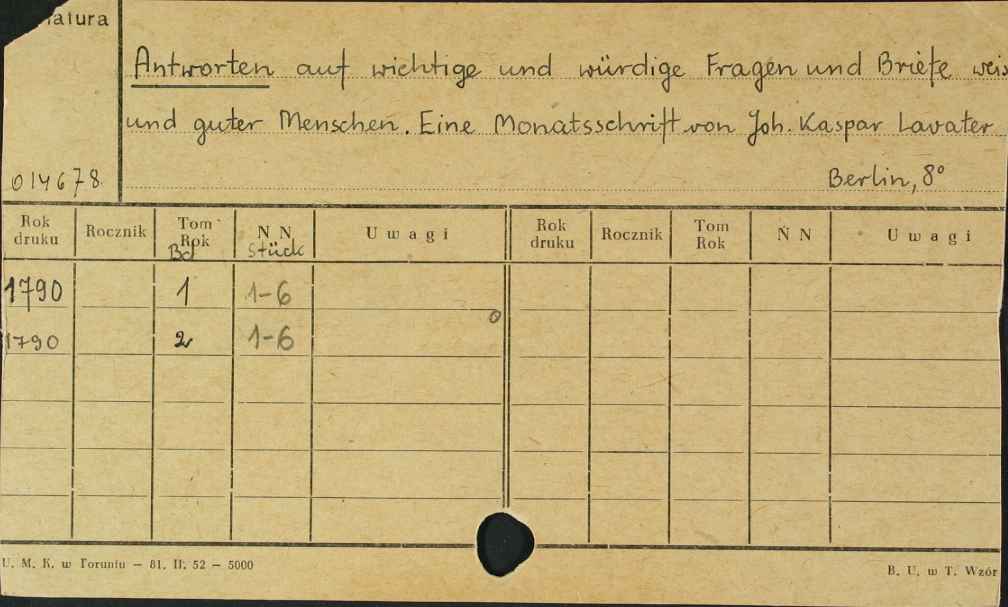 atura
Antworten auf wichtige und würdige Fragen und Briefe weis
und guter Menschen. Eine Monatsschrift von Joh. Kaspar Lavater.
014678
Berlin, 8°
Rok druku Rocznik Tom Rok Bd N N Stück Uwagi Rok druku Rocznik Tom Rok N N Uwagi
1790 1 1-6
1790 2 1-6
U. M. K. w Toruniu — 81. II. 52 — 5000
B. U. w T. Wzór